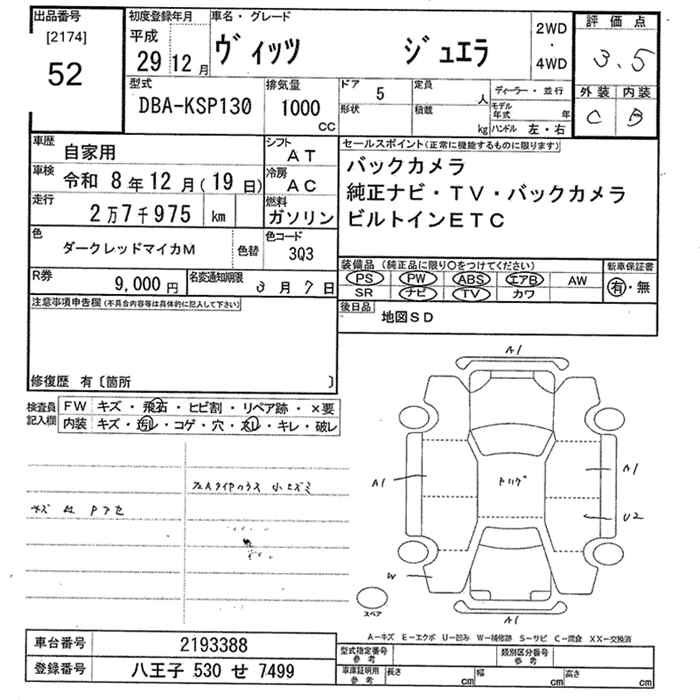 出品番号
[2174]
52
初度登録年月
平成
29 12 月
車名・グレード
ヴィッツ ジュエラ
2WD
・
4WD
評価点
3.5
外装 内装
C B
型式
DBA-KSP130
排気量
1000 cc
ドア 5
形状
定員 人
積載 kg
ディーラー・並行
モデル年式 年
ハンドル 左・右
車歴 自家用
シフト AT
車検 令和 8年 12月(19日)
冷房 AC
走行 2万7千975 km
燃料 ガソリン
色 ダークレッドマイカM 色替
色コード 3Q3
R券 9,000円
名変通知期限 3月7日
セールスポイント(正常に機能するものに限ります)
バックカメラ
純正ナビ・TV・バックカメラ
ビルトインETC
装備品(純正品に限り○をつけてください)
PS PW ABS エアB AW
SR ナビ TV カワ
新車保証書
有・無
後日品 地図SD
注意事項申告欄(不具合内容等は具体的に記入して下さい)
修復歴 有〔箇所 〕
検査員記入欄
FW キズ・飛石・ヒビ割・リペア跡・×要
内装 キズ・汚レ・コゲ・穴・スレ・キレ・破レ
小キズ
キズ
A1
A1
A1
U2
W
A1
スペア
A−キズ E−エクボ U−凹み W−補修跡 S−サビ C−腐食 XX−交換済
車台番号 2193388
登録番号 八王子 530 せ 7499
型式指定番号 参考
類別区分番号 参考
車庫証明用 参考
長さ cm
幅 cm
高さ cm